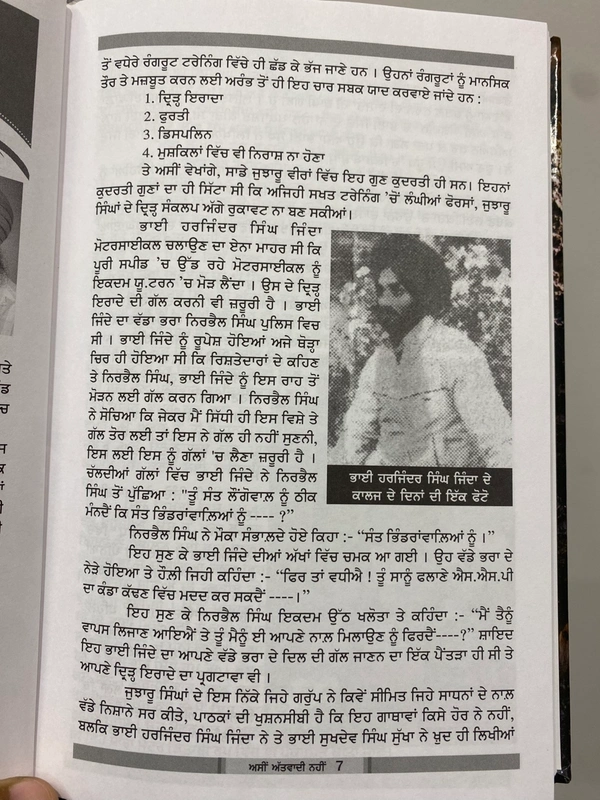 ਤੋਂ ਵਧੇਰੇ ਰੰਗਰੂਟ ਟਰੇਨਿੰਗ ਵਿੱਚੇ ਹੀ ਛੱਡ ਕੇ ਭੱਜ ਜਾਣੇ ਹਨ । ਉਹਨਾਂ ਰੰਗਰੂਟਾਂ ਨੂੰ ਮਾਨਸਿਕ
ਤੌਰ ਤੇ ਮਜ਼ਬੂਤ ਕਰਨ ਲਈ ਅਰੰਭ ਤੋਂ ਹੀ ਇਹ ਚਾਰ ਸਬਕ ਯਾਦ ਕਰਵਾਏ ਜਾਂਦੇ ਹਨ :
1. ਦ੍ਰਿੜ੍ਹ ਇਰਾਦਾ
2. ਫੁਰਤੀ
3. ਡਿਸਪਲਿਨ
4. ਮੁਸ਼ਕਿਲਾਂ ਵਿੱਚ ਵੀ ਨਿਰਾਸ਼ ਨਾ ਹੋਣਾ
ਤੇ ਅਸੀਂ ਵੇਖਾਂਗੇ, ਸਾਡੇ ਜੁਝਾਰੂ ਵੀਰਾਂ ਵਿੱਚ ਇਹ ਗੁਣ ਕੁਦਰਤੀ ਹੀ ਸਨ। ਇਹਨਾਂ
ਕੁਦਰਤੀ ਗੁਣਾਂ ਦਾ ਹੀ ਸਿੱਟਾ ਸੀ ਕਿ ਅਜਿਹੀ ਸਖਤ ਟਰੇਨਿੰਗ 'ਚੋਂ ਲੰਘੀਆਂ ਫੋਰਸਾਂ, ਜੁਝਾਰੂ
ਸਿੰਘਾਂ ਦੇ ਦ੍ਰਿੜ੍ਹ ਸੰਕਲਪ ਅੱਗੇ ਰੁਕਾਵਟ ਨਾ ਬਣ ਸਕੀਆਂ।
ਭਾਈ ਹਰਜਿੰਦਰ ਸਿੰਘ ਜਿੰਦਾ
ਮੋਟਰਸਾਈਕਲ ਚਲਾਉਣ ਦਾ ਏਨਾ ਮਾਹਰ ਸੀ ਕਿ
ਪੂਰੀ ਸਪੀਡ 'ਚ ਉੱਡ ਰਹੇ ਮੋਟਰਸਾਈਕਲ ਨੂੰ
ਇਕਦਮ ਯੂ.ਟਰਨ 'ਚ ਮੋੜ ਲੈਂਦਾ । ਉਸ ਦੇ ਦ੍ਰਿੜ੍ਹ
ਇਰਾਦੇ ਦੀ ਗੱਲ ਕਰਨੀ ਵੀ ਜ਼ਰੂਰੀ ਹੈ । ਭਾਈ
ਜਿੰਦੇ ਦਾ ਵੱਡਾ ਭਰਾ ਨਿਰਭੈਲ ਸਿੰਘ ਪੁਲਿਸ ਵਿਚ
ਸੀ । ਭਾਈ ਜਿੰਦੇ ਨੂੰ ਰੂਪੋਸ਼ ਹੋਇਆਂ ਅਜੇ ਥੋੜ੍ਹਾ
ਚਿਰ ਹੀ ਹੋਇਆ ਸੀ ਕਿ ਰਿਸ਼ਤੇਦਾਰਾਂ ਦੇ ਕਹਿਣ
ਤੇ ਨਿਰਭੈਲ ਸਿੰਘ, ਭਾਈ ਜਿੰਦੇ ਨੂੰ ਇਸ ਰਾਹ ਤੋਂ
ਮੋੜਨ ਲਈ ਗੱਲ ਕਰਨ ਗਿਆ । ਨਿਰਭੈਲ ਸਿੰਘ
ਨੇ ਸੋਚਿਆ ਕਿ ਜੇਕਰ ਮੈਂ ਸਿੱਧੀ ਹੀ ਇਸ ਵਿਸ਼ੇ ਤੇ
ਗੱਲ ਤੋਰ ਲਈ ਤਾਂ ਇਸ ਨੇ ਗੱਲ ਹੀ ਨਹੀਂ ਸੁਣਨੀ,
ਇਸ ਲਈ ਇਸ ਨੂੰ ਗੱਲਾਂ 'ਚ ਲੈਣਾ ਜ਼ਰੂਰੀ ਹੈ ।
ਚੱਲਦੀਆਂ ਗੱਲਾਂ ਵਿੱਚ ਭਾਈ ਜਿੰਦੇ ਨੇ ਨਿਰਭੈਲ
ਸਿੰਘ ਤੋਂ ਪੁੱਛਿਆ : "ਤੂੰ ਸੰਤ ਲੌਂਗੋਵਾਲ਼ ਨੂੰ ਠੀਕ
ਮੰਨਦੈਂ ਕਿ ਸੰਤ ਭਿੰਡਰਾਂਵਾਲ਼ਿਆਂ ਨੂੰ ---- ?”
ਭਾਈ ਹਰਜਿੰਦਰ ਸਿੰਘ ਜਿੰਦਾ ਦੇ
ਕਾਲਜ ਦੇ ਦਿਨਾਂ ਦੀ ਇੱਕ ਫੋਟੋ
ਨਿਰਭੈਲ ਸਿੰਘ ਨੇ ਮੌਕਾ ਸੰਭਾਲ਼ਦੇ ਹੋਏ ਕਿਹਾ :- “ਸੰਤ ਭਿੰਡਰਾਂਵਾਲ਼ਿਆਂ ਨੂੰ ।”
ਇਹ ਸੁਣ ਕੇ ਭਾਈ ਜਿੰਦੇ ਦੀਆਂ ਅੱਖਾਂ ਵਿੱਚ ਚਮਕ ਆ ਗਈ । ਉਹ ਵੱਡੇ ਭਰਾ ਦੇ
ਨੇੜੇ ਹੋਇਆ ਤੇ ਹੌਲ਼ੀ ਜਿਹੀ ਕਹਿੰਦਾ :- “ਫਿਰ ਤਾਂ ਵਧੀਐ ! ਤੂੰ ਸਾਨੂੰ ਫਲਾਣੇ ਐਸ.ਐਸ.ਪੀ
ਦਾ ਕੰਡਾ ਕੱਢਣ ਵਿੱਚ ਮਦਦ ਕਰ ਸਕਦੈਂ ----।”
ਇਹ ਸੁਣ ਕੇ ਨਿਰਭੈਲ ਸਿੰਘ ਇਕਦਮ ਉੱਠ ਖਲੋਤਾ ਤੇ ਕਹਿੰਦਾ :- “ਮੈਂ ਤੈਨੂੰ
ਵਾਪਸ ਲਿਜਾਣ ਆਇਐਂ ਤੇ ਤੂੰ ਮੈਨੂੰ ਈ ਆਪਣੇ ਨਾਲ਼ ਮਿਲਾਉਣ ਨੂੰ ਫਿਰਦੈਂ----?” ਸ਼ਾਇਦ
ਇਹ ਭਾਈ ਜਿੰਦੇ ਦਾ ਆਪਣੇ ਵੱਡੇ ਭਰਾ ਦੇ ਦਿਲ ਦੀ ਗੱਲ ਜਾਣਨ ਦਾ ਇੱਕ ਪੈਂਤੜਾ ਹੀ ਸੀ ਤੇ
ਆਪਣੇ ਦ੍ਰਿੜ੍ਹ ਇਰਾਦੇ ਦਾ ਪ੍ਰਗਟਾਵਾ ਵੀ ।
ਜੁਝਾਰੂ ਸਿੰਘਾਂ ਦੇ ਇਸ ਨਿੱਕੇ ਜਿਹੇ ਗਰੁੱਪ ਨੇ ਕਿਵੇਂ ਸੀਮਿਤ ਜਿਹੇ ਸਾਧਨਾਂ ਦੇ ਨਾਲ਼
ਵੱਡੇ ਨਿਸ਼ਾਨੇ ਸਰ ਕੀਤੇ, ਪਾਠਕਾਂ ਦੀ ਖੁਸ਼ਨਸੀਬੀ ਹੈ ਕਿ ਇਹ ਗਾਥਾਵਾਂ ਕਿਸੇ ਹੋਰ ਨੇ ਨਹੀਂ,
ਬਲਕਿ ਭਾਈ ਹਰਜਿੰਦਰ ਸਿੰਘ ਜਿੰਦਾ ਨੇ ਤੇ ਭਾਈ ਸੁਖਦੇਵ ਸਿੰਘ ਸੁੱਖਾ ਨੇ ਖ਼ੁਦ ਹੀ ਲਿਖੀਆਂ
ਅਸੀਂ ਅੱਤਵਾਦੀ ਨਹੀਂ 7